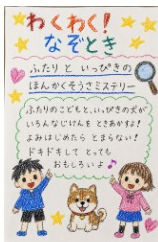 わくわく!
なぞとき
ふたり と いっぴきの
ほんかくそうさミステリー
ふたりのこどもと、いっぴきの犬が
いろんなじけんを ときあかすよ!
よみはじめたら とまらない!
ドキドキして とっても
おもしろいよ♪